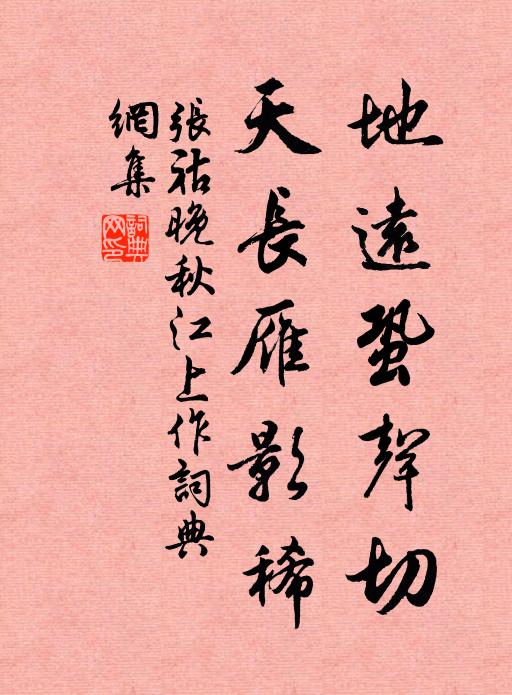 地遠蛩聲切
天長雁影稀
張祜晚秋江上作詞典
網集
詞典
网印